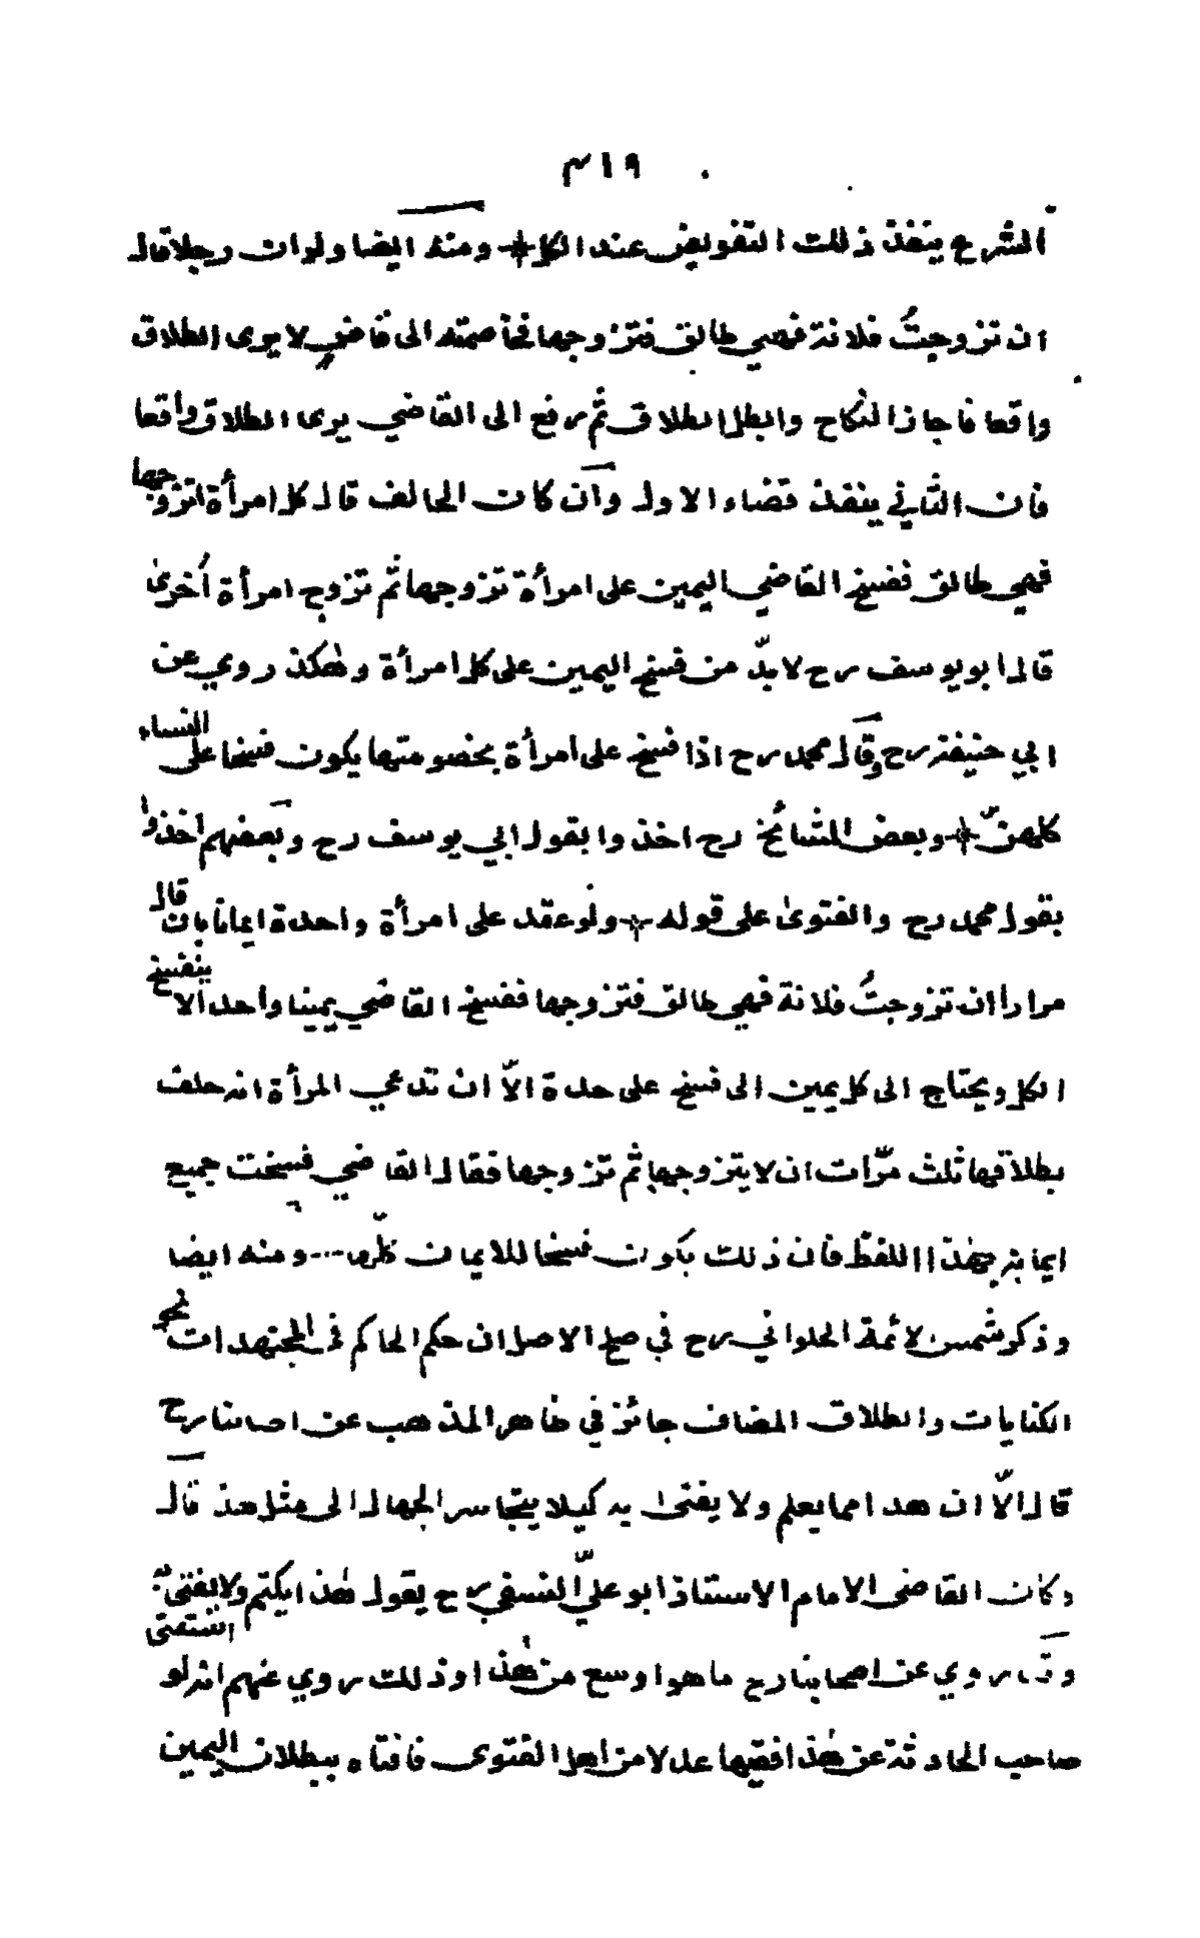 ٤١٩
الشرع ينفذ ذلك التفويض عند الكل ومنه ايضا ولو ان رجلا قال
ان تزوجتُ فلانة فهي طالق فتزوجها فخاصمته الى قاضٍ لا يرى الطلاق
واقعا فاجاز النكاح وابطل الطلاق ثم رفع الى القاضي يرى الطلاق واقعا
فان الثاني ينفذ قضاء الاول وان كان الحالف قال كل امرأة اتزوجها
فهي طالق ففسخ القاضي اليمين على امرأة تزوجها ثم تزوج امرأة أخرىٰ
قال ابو يوسف رح لا بدّ من فسخ اليمين على كل امرأة وهٰكذ روي عن
ابي حنيفة رح وقال محمد رح اذا فسخ على امرأة بخصومتها يكون فسخا على النساء
كلهنّ وبعض المشائخ رح اخذوا بقول ابي يوسف رح وبعضهم اخذوا
بقول محمد رح والفتوىٰ على قوله ولو عقد على امرأة واحدة ايمانا بان قال
مرارا ان تزوجتُ فلانة فهي طالق فتزوجها ففسخ القاضي يمينا واحدا لا ينفسخ
الكل ويحتاج الى كل يمين الى فسخ على حدة الاّ ان تدعي المرأة انه حلف
بطلاقها ثلث مرّات ان لا يتزوجها ثم تزوجها فقال القاضي فسخت جميع
ايمانه بهٰذا اللفظ فان ذلك يكون فسخا للايمان كلّها ومنه ايضا
وذكر شمس لائمة الحلواني رح في صلح الاصل ان حكم الحاكم في المجتهدات نحو
الكنايات والطلاق المضاف جائز في ظاهر المذهب عن اصابنا رح
قال الاّ ان هدا مما يعلم ولا يفتىٰ به كيلا يتجاسر الجهال الى مثل هذ قال
وكان القاضى الامام الاستاذ ابو عليّ النسفي رح يقول هٰذا يكتم ولا يفتىٰ به
وقد روي عن اصحابنا رح ما هو اوسع من هٰذا وذلك روي عنهم انه لو استفتى
صاحب الحادثة عن هٰذا فقيها عدلا من اهل الفتوى فافتاه ببطلان اليمين